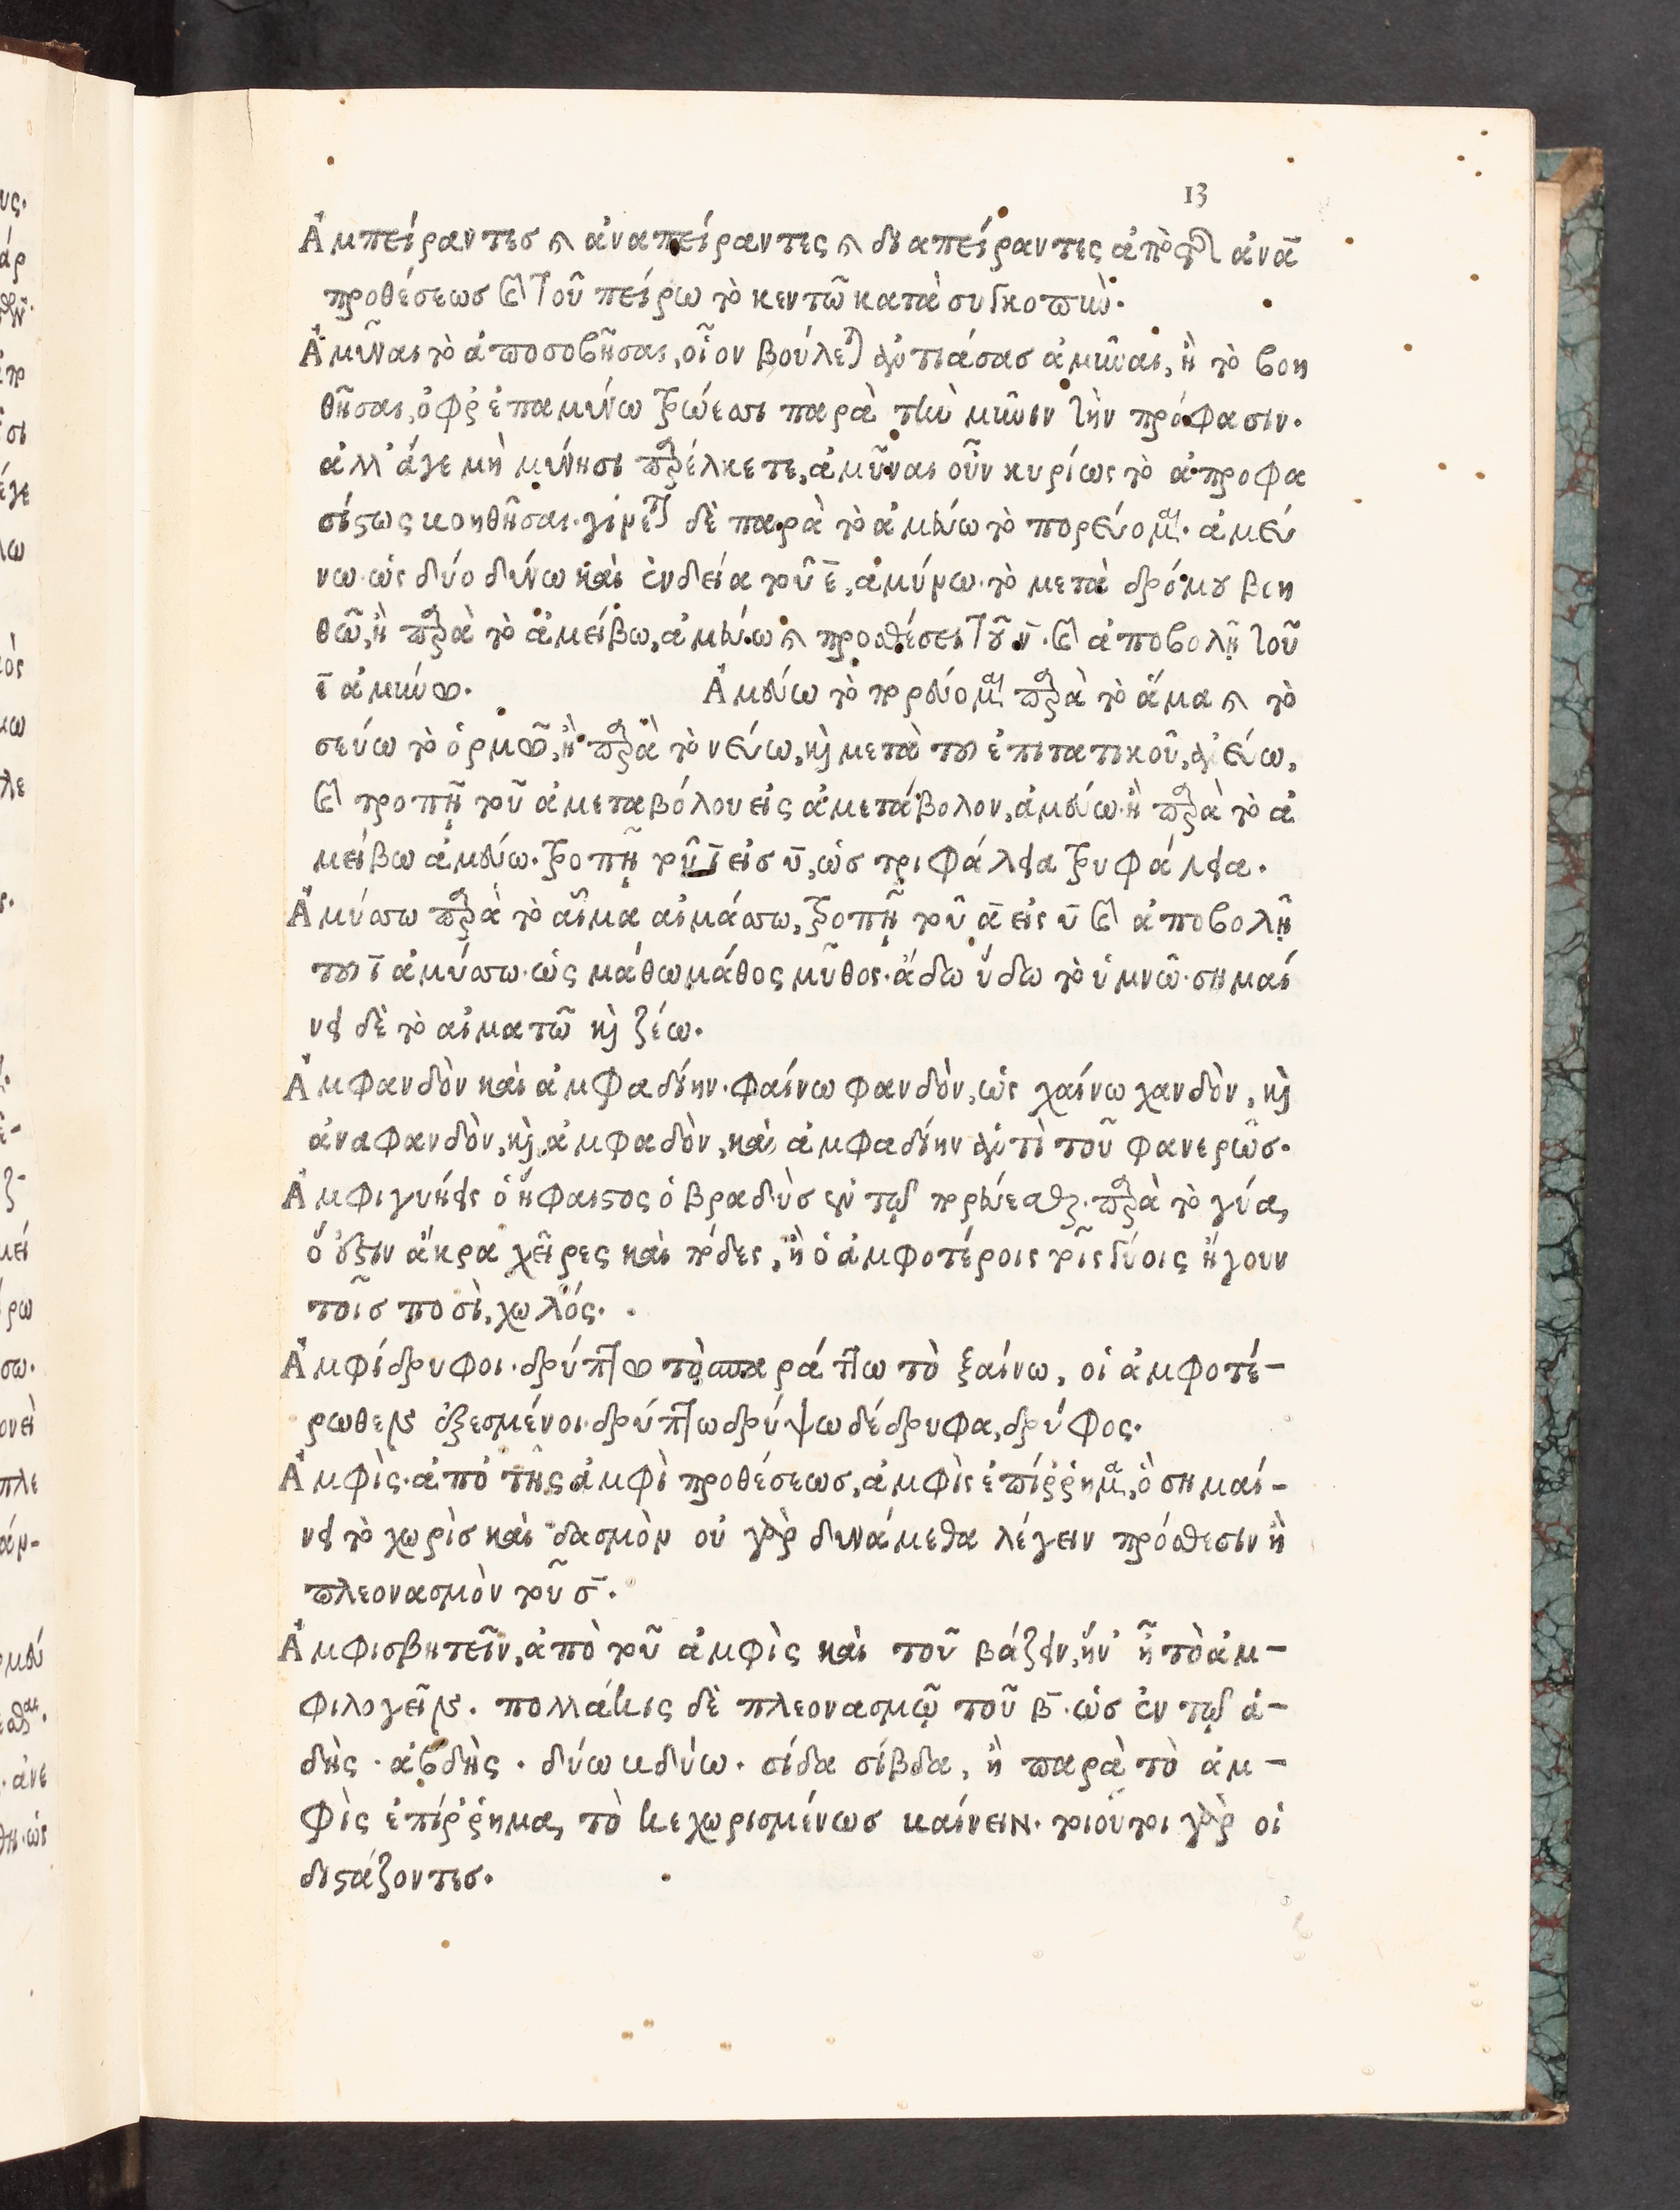 13
Ἀμπείραντεσ ϗ ἀναπείραντες ϗ διαπείραντες ἀπὸ τῆς ἀνὰ
προθέσεωσ καὶ τοῦ πείρω τὸ κεντῶ κατὰ συγκοπὴν.
Ἀμῦναι τὸ ἀποσοβῆσαι, οἷον βούλεται ἀντιάσασ ἀμῦναι, ἢ τὸ βοη
θῆσαι, ὀφρ ἐπαμύνω τρώεσσι παρὰ τὴν μῦνιν τὴν πρόφασιν.
ἀλλ' ἄγε μὴ μύνησι παρέλκετε, ἀμῦναι οὖν κυρίως τὸ ἀπροφα
σίστως βοηθῆσαι. γίνεται δὲ παρὰ τὸ ἀμεύω τὸ πορεύομαι. ἀμεύ
νω. ὡς δύο δύνω καὶ ἐνδεία τοῦ ε̄, ἀμύνω. τὸ μετὰ δρόμου βοη
θῶ, ἢ παρὰ τὸ ἀμείβω, ἀμεύνω ϗ προσθέσει τοῦ ν̄. καὶ ἀποβολῇ τοῦ
ε̄ ἀμύνω. Ἀμεύω τὸ πορεύομαι παρὰ τὸ ἅμα ϗ τὸ
σεύω τὸ ὁρμῶ, ἢ παρὰ τὸ νεύω, καὶ μετὰ τοῦ ἐπιτατικοῦ, ἀνεύω,
καὶ τροπῇ τοῦ ἀμεταβόλου εἰς ἀμετάβολον, ἀμεύω. ἢ παρὰ τὸ ἀ
μείβω ἀμεύω. τροπῇ τοῦ ῑ εἰσ ῡ, ὡσ τριφάλεια τρυφάλεια.
Ἀμύσσω παρὰ τὸ αἷμα αἱμάσσω, τροπῇ τοῦ ᾱ εἰς ῡ καὶ ἀποβολῇ
τοῦ ῑ ἀμύσσω. ὡς μάθω μάθος μῦθος. ἄδω ὕδω τὸ ὑμνῶ. σημαί
νει δὲ τὸ αἱματῶ καὶ ξέω.
Ἀμφανδὸν καὶ ἀμφαδίην. φαίνω φανδὸν, ὡς χαίνω χανδὸν, καὶ
ἀναφανδὸν, καὶ ἀμφαδὸν, καὶ ἀμφαδίην ἀντὶ τοῦ φανερῶσ.
Ἀμφιγυήεις ὁ ἥφαιστος ὁ βραδὺσ ἐν τῷ πορεύεσθαι. παρὰ τὸ γύα,
ὅ ἐστιν ἄκρα χεῖρες καὶ πόδες, ἢ ὁ ἀμφοτέροις τοῖς γύοις ἤγουν
τοῖσ ποσὶ, χωλός.
Ἀμφίδρυφοι. δρύπτω τὸ σπαράττω τὸ ξαίνω, οἱ ἀμφοτέ-
ρωθεν ἐξεσμένοι. δρύπτω δρύψω δέδρυφα, δρύφος.
Ἀμφὶς. ἀπὸ τῆς ἀμφὶ προθέσεωσ, ἀμφὶς ἐπίῤῥημα, ὃ σημαί-
νει τὸ χωρὶσ καὶ δασμὸν οὐ γὰρ δυνάμεθα λέγειν πρόσθεσιν ἢ
πλεονασμὸν τοῦ σ̄.
Ἀμφισβητεῖν, ἀπὸ τοῦ ἀμφὶς καὶ τοῦ βάζειν, ἤν ᾖ τὸ ἀμ-
φιλογεῖν. πολλάκις δὲ πλεονασμῷ τοῦ β̄. ὡσ ἐν τῷ ἀ-
δὴς. ἀβδὴς. δύω βδύω. σίδα σίβδα, ἢ παρὰ τὸ ἀμ-
φὶς ἐπίῤῥημα, τὸ κεχωρισμένωσ βαίνειν. τοιοῦτοι γὰρ οἱ
διστάζοντεσ.